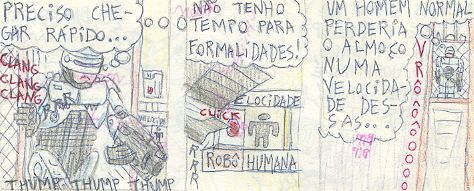 PRECISO CHE-
GAR RÁPIDO...
CLANG
CLANG
CLANG
THUMP THUMP THUMP
NÃO TENHO
TEMPO PARA
FORMALIDADES!
VELOCIDADE
CLICK
ROBÔ HUMANA
UM HOMEM NORMAL
PERDERIA
O ALMOÇO
NUMA
VELOCIDA-
DE DES-
SAS...